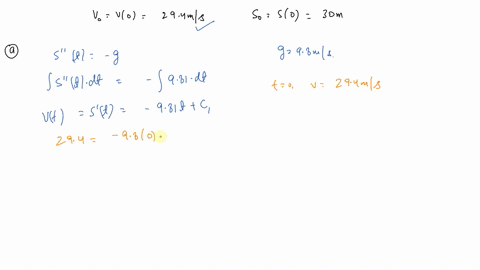 V₀ = v(0) = 29.4m/s   S₀ = S(0) = 30m
ⓐ S''(t) = -g   g = 9.8m/s
∫ S''(t)·dt = - ∫ 9.81·dt   t=   v = 29.4m/s
V(t) = S'(t) = - 9.81t + C₁
29.4 = -9.8(0)